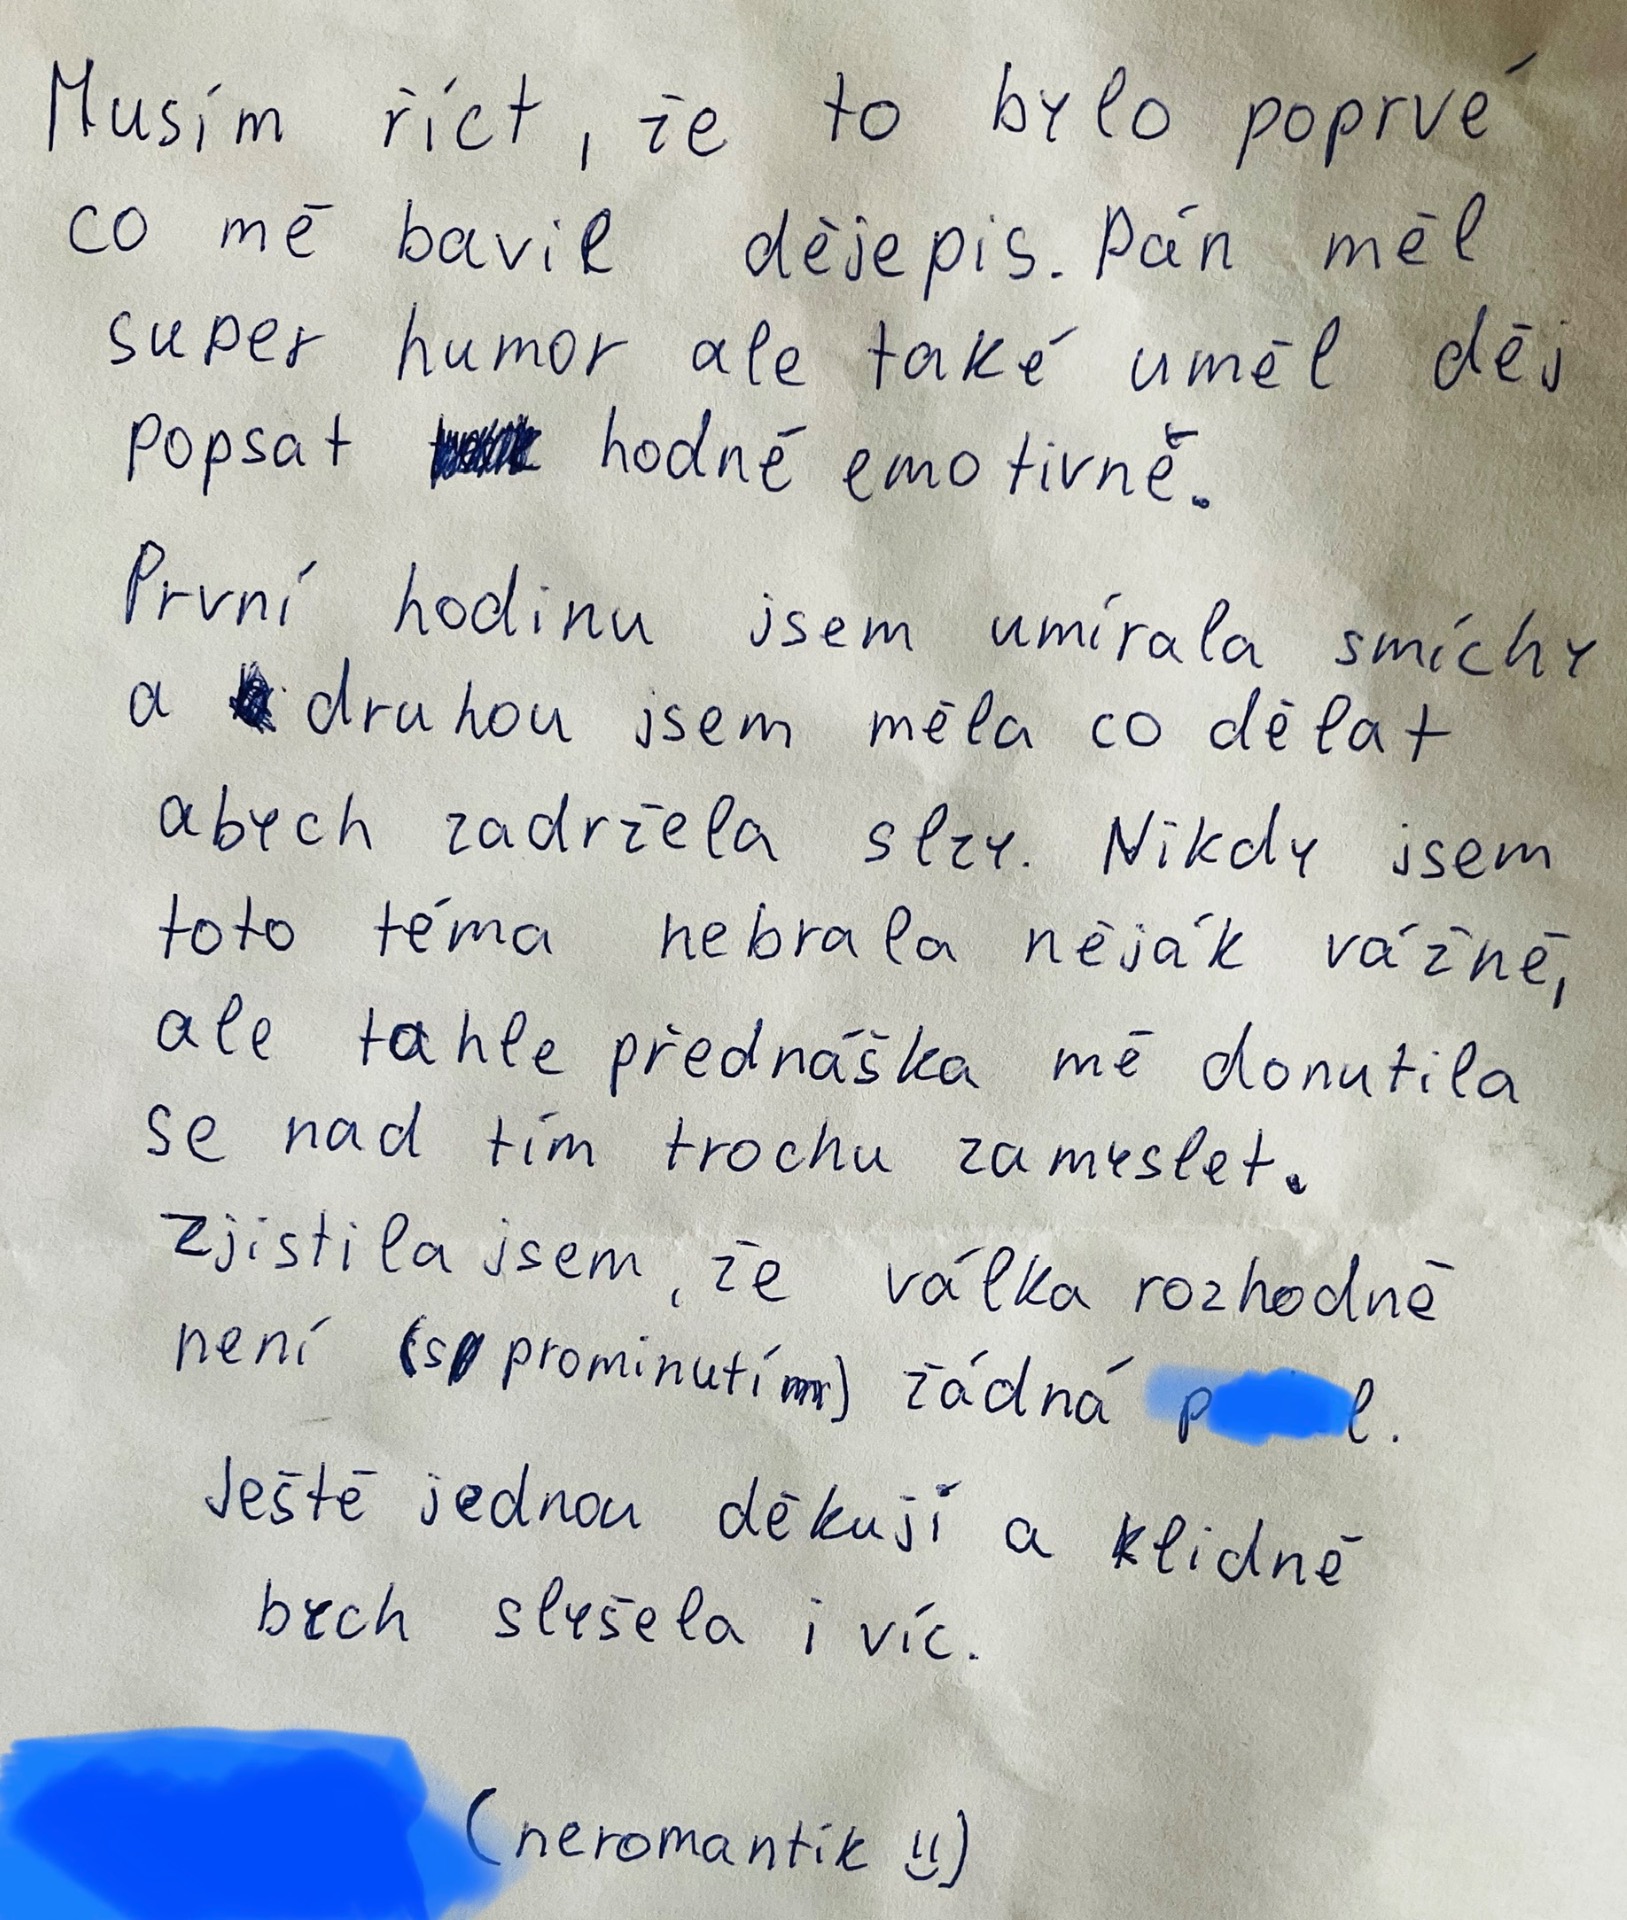 Musím říct, že to bylo poprvé
co mě bavil dějepis. Pán měl
super humor ale také uměl děj
popsat hodně emotivně.
První hodinu jsem umírala smíchy
a druhou jsem měla co dělat
abych zadržela slzy. Nikdy jsem
toto téma nebrala něják vážně,
ale tahle přednáška mě donutila
se nad tím trochu zamyslet.
Zjistila jsem, že válka rozhodně
není (s prominutím) žádná
Ještě jednou děkuji a klidně
bych slyšela i víc.
(neromantik !!)